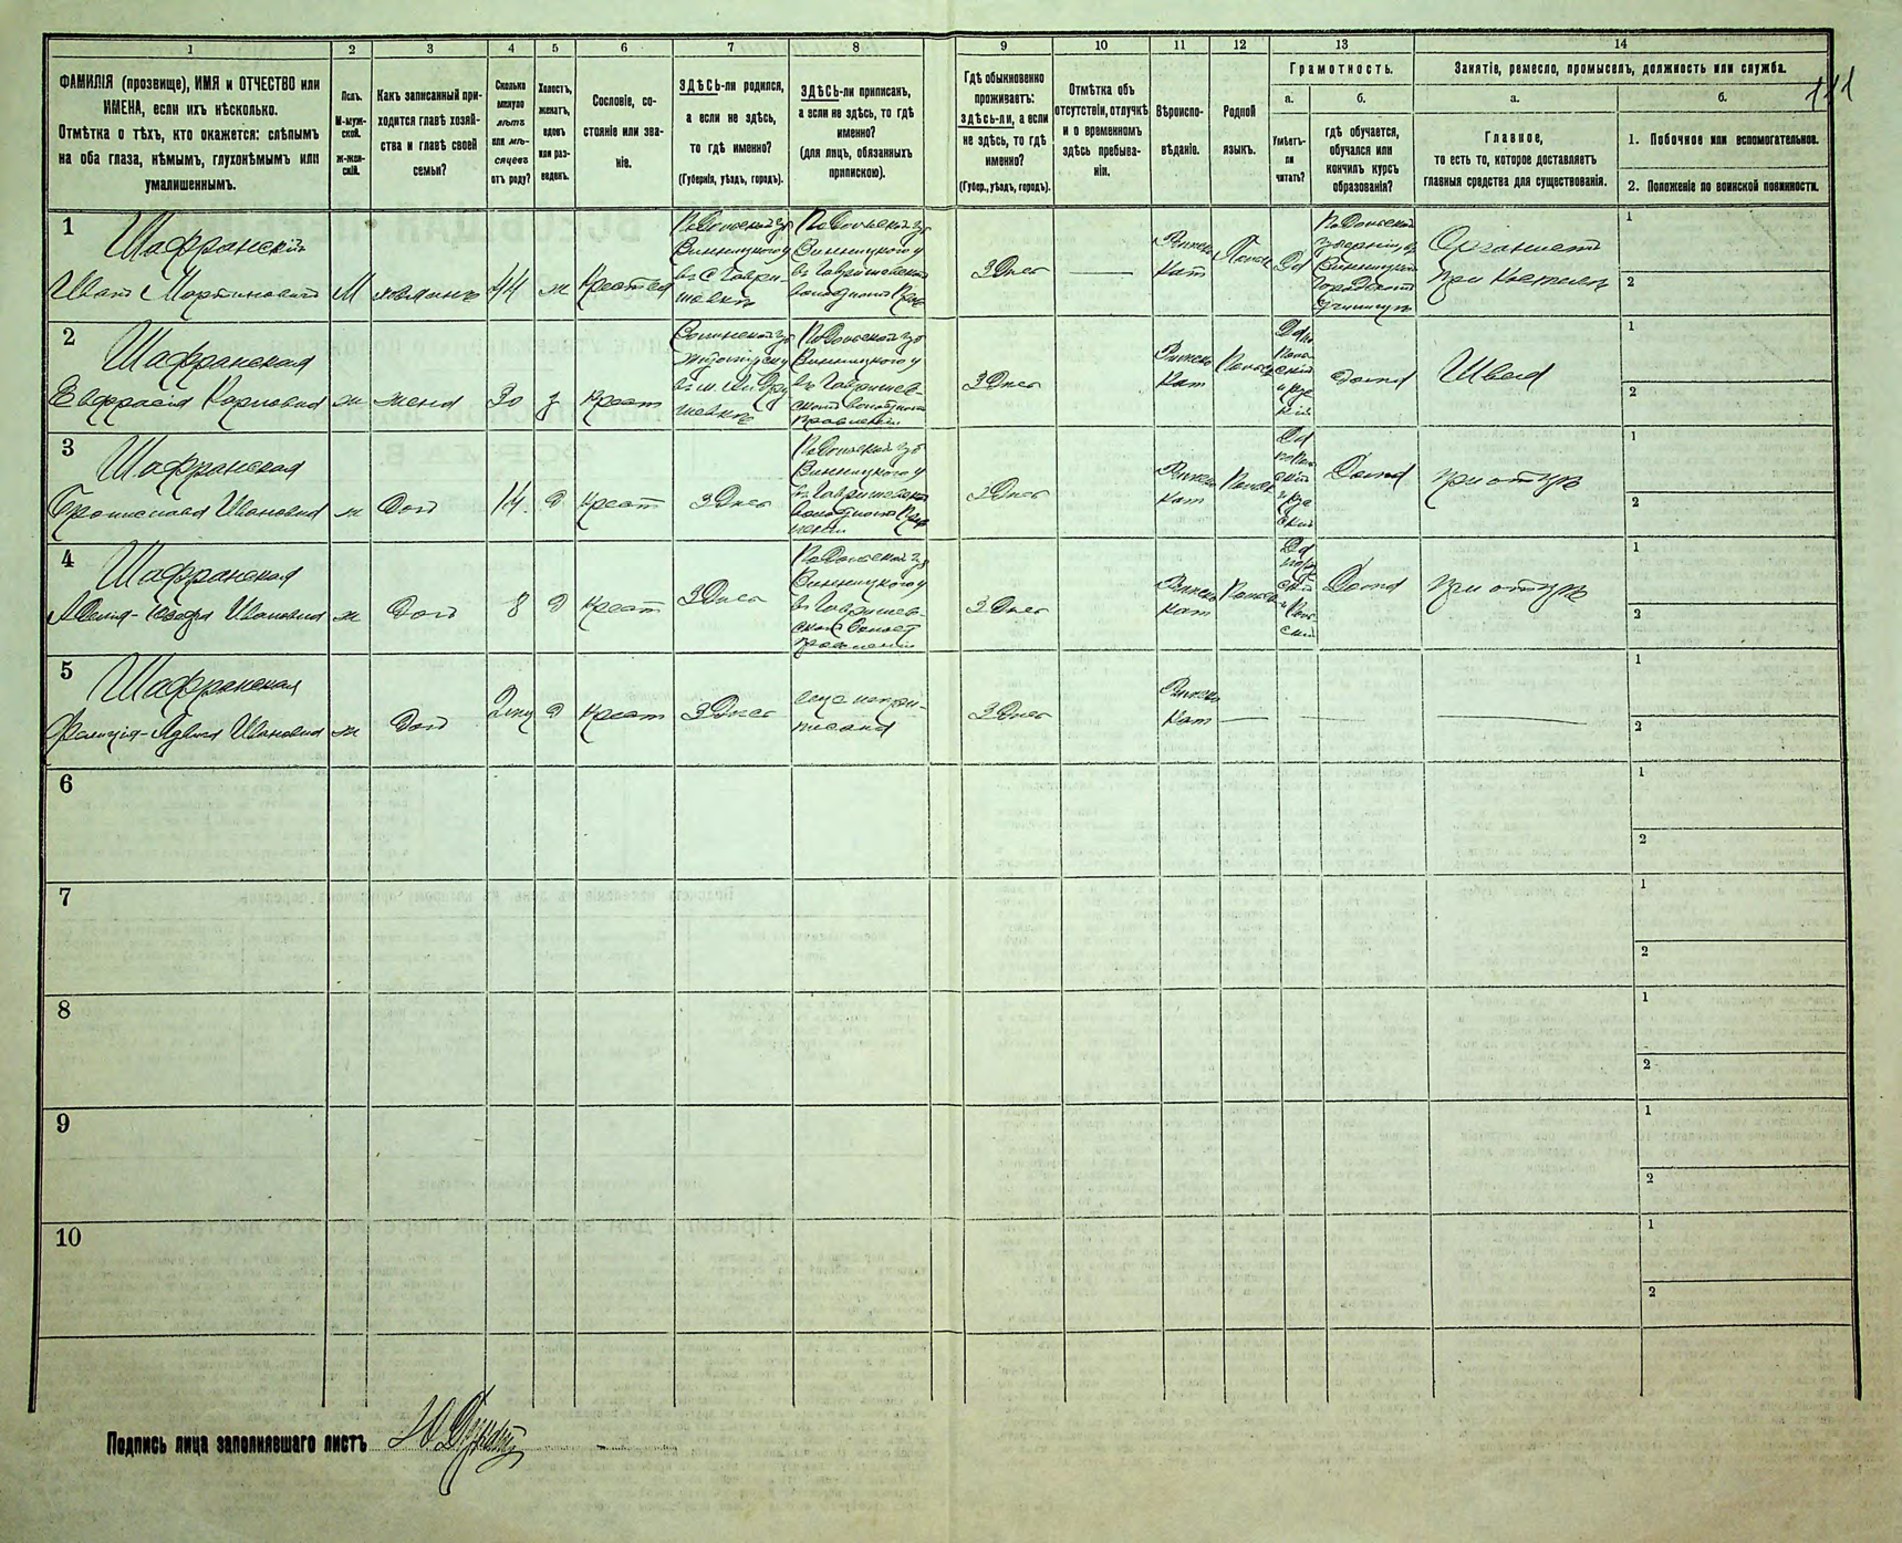 1 2 3 4 5 6 7 8 9 10 11 12 13 14
ФАМИЛІЯ (прозвище), ИМЯ и ОТЧЕСТВО или
ИМЕНА, если ихъ нѣсколько.
Отмѣтка о тѣхъ, кто окажется: слѣпымъ
на оба глаза, нѣмымъ, глухонѣмымъ или
умалишеннымъ.
Полъ.
М-муж-
ской.
ж-жен-
скій.
Какъ записанный при-
ходится главѣ хозяй-
ства и главѣ своей
семьи?
Сколько
минуло
лѣтъ
или мѣ-
сяцевъ
отъ роду?
Холостъ,
женатъ,
вдовъ
или раз-
веденъ.
Сословіе, со-
стояніе или зва-
ніе.
ЗДѢСЬ-ли родился,
а если не здѣсь,
то гдѣ именно?
(Губернія, уѣздъ, городъ).
ЗДѢСЬ-ли приписанъ,
а если не здѣсь, то гдѣ
именно?
(для лицъ, обязанныхъ
припискою).
Гдѣ обыкновенно
проживаетъ:
здѣсь-ли, а если
не здѣсь, то гдѣ
именно?
(Губер., уѣздъ, городъ).
Отмѣтка объ
отсутствіи, отлучкѣ
и о временномъ
здѣсь пребыва-
ніи.
Вѣроиспо-
вѣданіе.
Родной
языкъ.
Грамотность.
а.
Умѣетъ-
ли
читать?
б.
гдѣ обучается,
обучался или
кончилъ курсъ
образованія?
Занятіе, ремесло, промыселъ, должность или служба.
а.
Главное,
то есть то, которое доставляетъ
главныя средства для существованія.
б.
1. Побочное или вспомогательное.
2. Положеніе по воинской повинности.
1
Шафранскій
Иванъ Мартиновичъ
М
хозяинъ
44
ж
Подольской гу
Винницкого у
въ с Гаври-
шевкѣ
Подольской гу
Винницкого у
въ Гавришевской
ЗДѣсь
Римско
Кат
Польск
Да
Подольской
губерніи
Винницкій
Городской
Органистъ
при Костелѣ
1
2
2
Шафранская
Евфрасія Карловна
ж
жена
30
з
Крест
Волынской гу
Подольской гу
Винницкого у
въ Гавришев-
скомъ волостномъ
правленіи
ЗДѣсь
Римско
Кат
Польск
дома
Швея
1
2
3
Шафранская
Бронислава Ивановна
ж
Дочь
14
д
Крест
ЗДѣсь
Подольской гу
Винницкого у
въ Гавришевском
ЗДѣсь
Римско
Кат
Польск
Дома
при отцѣ
1
2
4
Шафранская
Ивановна
ж
Дочь
8
д
Крест
ЗДѣсь
Подольской гу
Винницкого у
въ Гавришев-
ском Волост
правленіи
ЗДѣсь
Римско
Кат
Польск
Дома
при отцѣ
1
2
5
Шафранская
Фелиція-Ядвига Ивановна
ж
Дочь
д
Крест
ЗДѣсь
еще непри-
писана
ЗДѣсь
Римско
Кат
1
2
6
1
2
7
1
2
8
1
2
9
1
2
10
1
2
Подпись лица заполнявшаго листъ